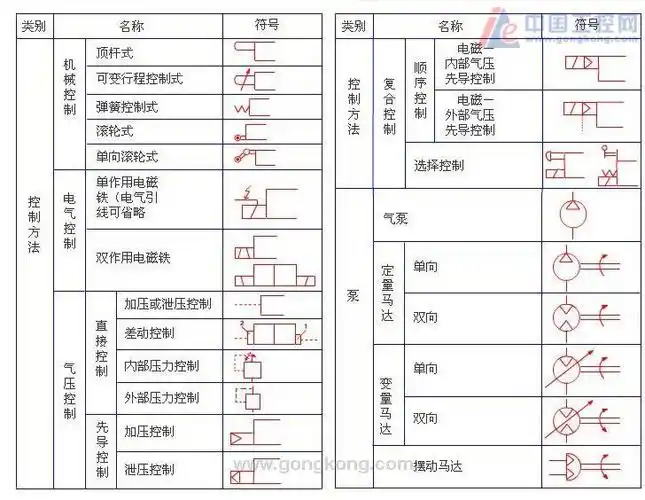 类别
名称
符号
控制方法
机械控制
顶杆式
可变行程控制式
弹簧控制式
滚轮式
单向滚轮式
电气控制
单作用电磁
铁（电气引
线可省略
双作用电磁铁
气压控制
直接控制
加压或泄压控制
差动控制
2
1
内部压力控制
外部压力控制
先导控制
加压控制
泄压控制
类别
名称
符号
中国工控网
控制方法
复合控制
顺序控制
电磁一
内部气压
先导控制
电磁一
外部气压
先导控制
选择控制
泵
气泵
定量马达
单向
双向
变量马达
单向
双向
摆动马达
www.gongkong.com